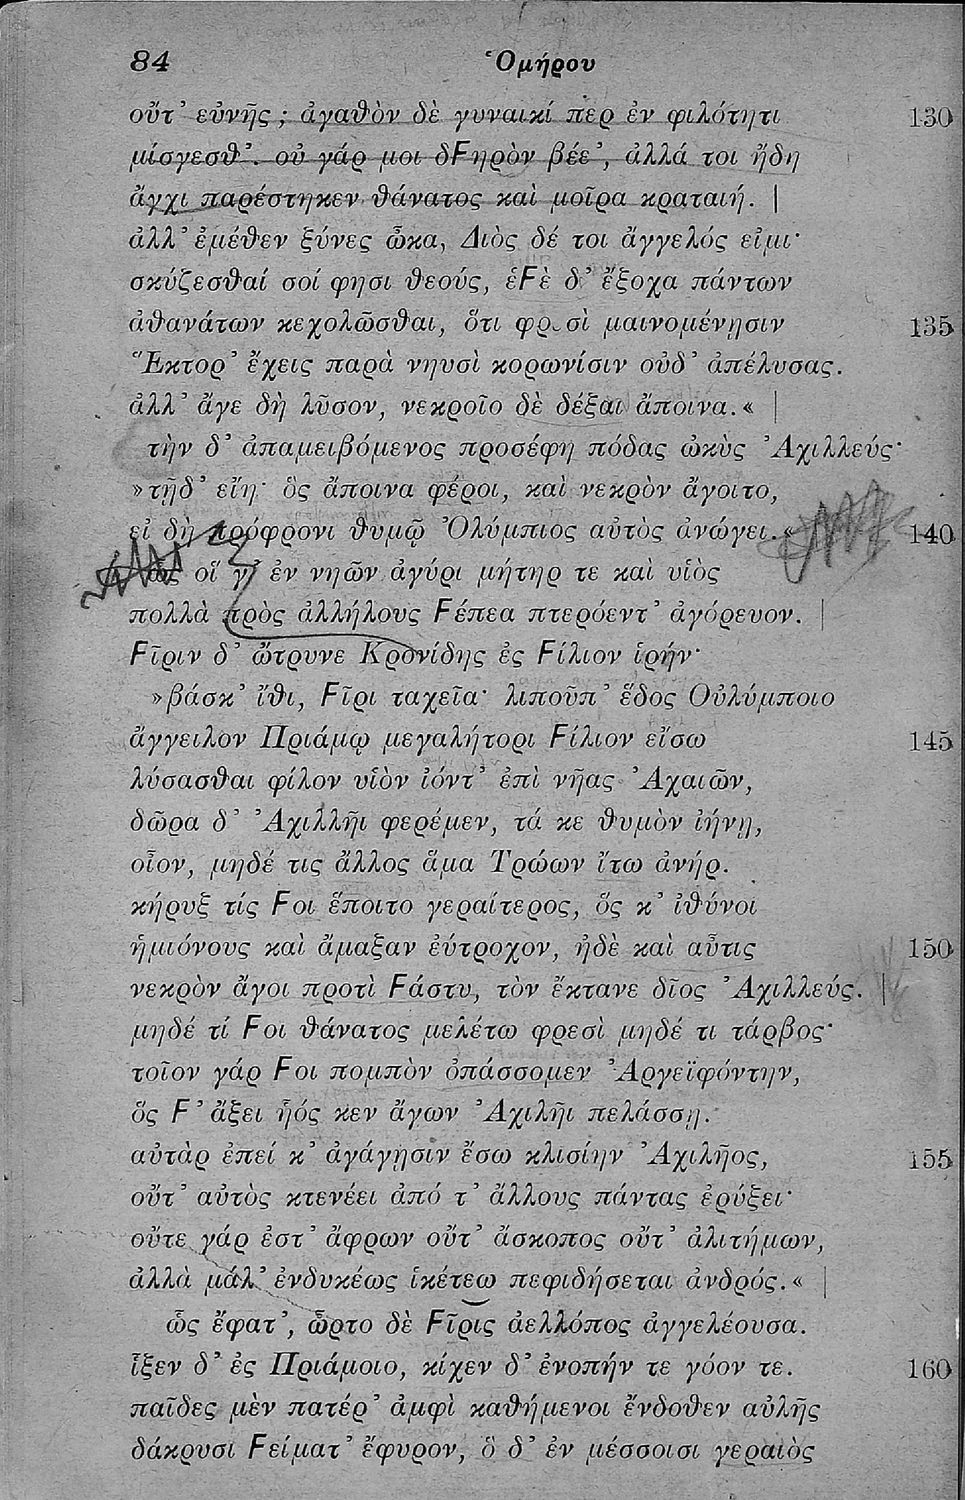 84 Ὁμήρου
οὔτ’ εὐνῆς; ἀγαθὸν δὲ γυναικί περ ἐν φιλότητι 130
μίσγεσθ’. οὐ γάρ μοι δϜηρὸν βέε’, ἀλλά τοι ἤδη
ἄγχι παρέστηκεν θάνατος καὶ μοῖρα κραταιή. |
ἀλλ’ ἐμέθεν ξύνες ὦκα, Διὸς δέ τοι ἄγγελός εἰμι·
σκύζεσθαί σοί φησι θεούς, ἑϜὲ δ’ ἔξοχα πάντων
ἀθανάτων κεχολῶσθαι, ὅτι φρεσὶ μαινομένῃσιν 135
Ἕκτορ’ ἔχεις παρὰ νηυσὶ κορωνίσιν οὐδ’ ἀπέλυσας.
ἀλλ’ ἄγε δὴ λῦσον, νεκροῖο δὲ δέξαι ἄποινα.« |
τὴν δ’ ἀπαμειβόμενος προσέφη πόδας ὠκὺς Ἀχιλλεύς·
»τῇδ’ εἴη· ὃς ἄποινα φέροι, καὶ νεκρὸν ἄγοιτο,
εἰ δὴ πρόφρονι θυμῷ Ὀλύμπιος αὐτὸς ἀνώγει.« 140
ὣς οἵ γ’ ἐν νηῶν ἀγύρι μήτηρ τε καὶ υἱὸς
πολλὰ πρὸς ἀλλήλους Ϝέπεα πτερόεντ’ ἀγόρευον. |
Ϝῖριν δ’ ὤτρυνε Κρονίδης ἐς Ϝίλιον ἱρήν·
»βάσκ’ ἴθι, Ϝῖρι ταχεῖα· λιποῦπ’ ἕδος Οὐλύμποιο
ἄγγειλον Πριάμῳ μεγαλήτορι Ϝίλιον εἴσω 145
λύσασθαι φίλον υἱὸν ἰόντ’ ἐπὶ νῆας Ἀχαιῶν,
δῶρα δ’ Ἀχιλλῆι φερέμεν, τά κε θυμὸν ἰήνῃ,
οἶον, μηδέ τις ἄλλος ἅμα Τρώων ἴτω ἀνήρ.
κήρυξ τίς Ϝοι ἕποιτο γεραίτερος, ὅς κ’ ἰθύνοι
ἡμιόνους καὶ ἄμαξαν ἐύτροχον, ἠδὲ καὶ αὖτις 150
νεκρὸν ἄγοι προτὶ Ϝάστυ, τὸν ἔκτανε δῖος Ἀχιλλεύς. |
μηδέ τί Ϝοι θάνατος μελέτω φρεσὶ μηδέ τι τάρβος·
τοῖον γάρ Ϝοι πομπὸν ὀπάσσομεν Ἀργεϊφόντην,
ὅς Ϝ’ ἄξει ἧός κεν ἄγων Ἀχιλῆι πελάσσῃ.
αὐτὰρ ἐπεί κ’ ἀγάγῃσιν ἔσω κλισίην Ἀχιλῆος, 155
οὔτ’ αὐτὸς κτενέει ἀπό τ’ ἄλλους πάντας ἐρύξει·
οὔτε γάρ ἐστ’ ἄφρων οὔτ’ ἄσκοπος οὔτ’ ἀλιτήμων,
ἀλλὰ μάλ’ ἐνδυκέως ἱκέτεω πεφιδήσεται ἀνδρός.« |
ὣς ἔφατ’, ὦρτο δὲ Ϝῖρις ἀελλόπος ἀγγελέουσα.
ἷξεν δ’ ἐς Πριάμοιο, κίχεν δ’ ἐνοπήν τε γόον τε. 160
παῖδες μὲν πατέρ’ ἀμφὶ καθήμενοι ἔνδοθεν αὐλῆς
δάκρυσι Ϝείματ’ ἔφυρον, ὃ δ’ ἐν μέσσοισι γεραιὸς